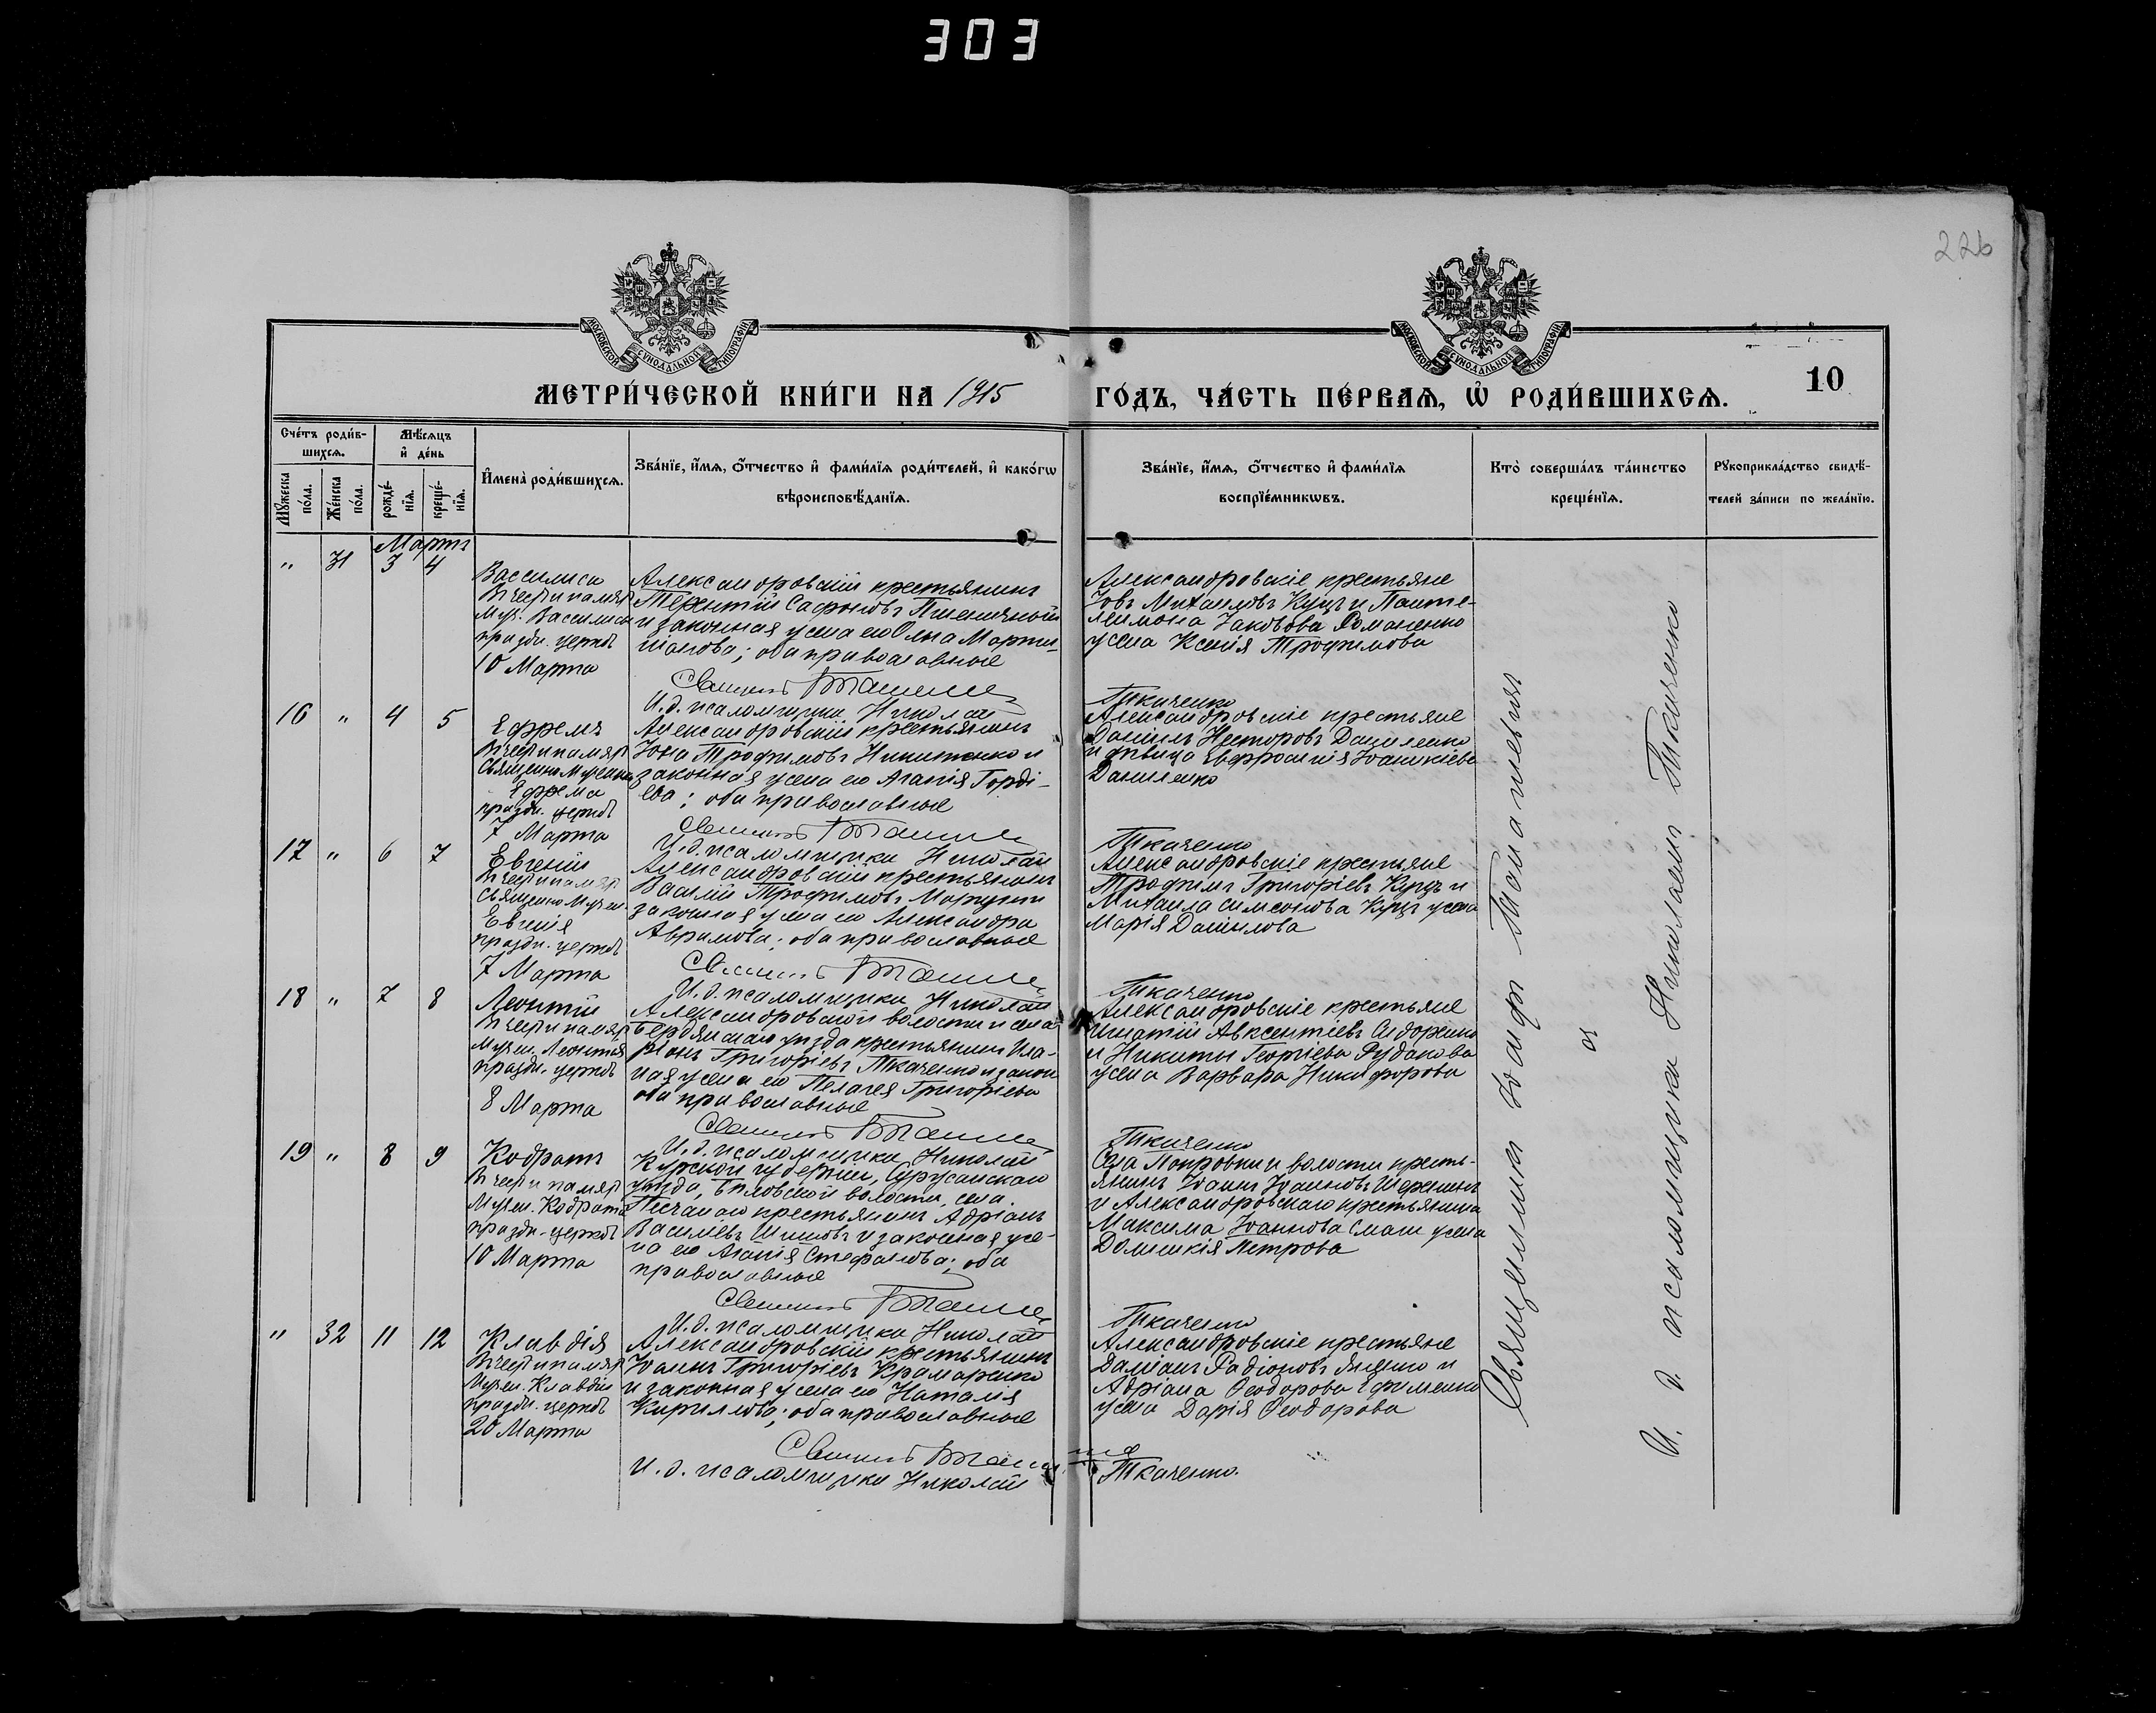 303
226
МОСКОВСКОЙ СУНОДАЛЬНОЙ ТИПОГРАФІИ
МОСКОВСКОЙ СУНОДАЛЬНОЙ ТИПОГРАФІИ
МЕТРИ́ЧЕСКОЙ КНИ́ГИ НА 1915 ГО́ДЪ, ЧА́СТЬ ПЕ́РВАѦ, Ѡ҆ РОДИ́ВШИХСѦ.
10
Сче́тъ роди́в-
шихсѧ.
Мѣ́сѧцъ
и҆ де́нь
Мꙋ́жеска
по́ла.
Же́нска
по́ла.
рожде́-
нїѧ.
креще́-
нїѧ.
И҆мена̀ роди́вшихсѧ.
Зва́нїе, и҆́мѧ, ѻ҆́тчество и҆ фами́лїѧ роди́телей, и҆ како́гѡ
вѣроисповѣ́данїѧ.
Зва́нїе, и҆́мѧ, ѻ҆́тчество и҆ фами́лїѧ
воспрїе́мникѡвъ.
Кто̀ соверша́лъ та́инство
креще́нїѧ.
Рꙋкоприкла́дство свидѣ́-
телей за́писи по жела́нїю.
Мартъ
" 31 3 4
Василиса
В честь памят
Муч. Василисы
праздн. церков
10 Марта
Александровскій крестьянинъ
Терентій Сафоновъ Пшеничный
и законная жена его Анна Марти-
ніанова; оба православные
Священ
И. д. псаломщика Николай
Александровскіе крестьяне
Іовъ Михаиловъ Куцъ и Панте-
леимона Іаковова Романенко
жена Ксенія Трофимова
Ткаченко
16 " 4 5
Ефремъ
В честь памят
Священномученика
Ефрема
праздн. церков
7 Марта
Александровскій крестьянинъ
Іона Трофимовъ Никитенко и
законная жена его Агапія Горді-
ева; оба православные
Священ
И. д. псаломщика Николай
Александровскіе крестьяне
Даніилъ Несторовъ Даниленко
и дѣвица Евфросинія Іоанникіева
Даниленко
Ткаченко
17 " 6 7
Евгеній
В честь памят
Священномучен.
Евгенія
праздн. церков
7 Марта
Александровскій крестьянинъ
Василій Трофимовъ
законная жена его Александра
Аврамова; оба православные
Священ
И. д. псаломщика Николай
Александровскіе крестьяне
Трофимъ Григоріевъ Куцъ и
Михаила Симеонова Куцъ жена
Марія Даніилова
Ткаченко
18 " 7 8
Леонтій
В честь памят
Мучен. Леонтія
праздн. церков
8 Марта
Александровской волости и села
Бердянскаго уѣзда крестьянинъ Ила-
ріонъ Григоріевъ Ткаченко и закон
ная жена его Пелагея Григоріева
оба православные
Священ
И. д. псаломщика Николай
Александровскіе крестьяне
Игнатій Авксентіевъ Сидоренко
и Никиты Георгіева Рудакова
жена Варвара Никифорова
Ткаченко
19 " 8 9
Кодратъ
В честь памят
Мучен. Кодрата
праздн. церков
10 Марта
Курской губерніи, Суджанскаго
уѣзда, Бѣловской волости, села
Песчанаго крестьянинъ Адріанъ
Василіевъ Шишовъ и законная же-
на его Агапія Стефанова; оба
православные
Священ
И. д. псаломщика Николай
Села Покровки и волости кресть-
янинъ Іоаннъ Іоанновъ
и Александровскаго крестьянина
Максима Іоаннова жена
Домникія Петрова
Ткаченко
" 32 11 12
Клавдія
В честь памят
Мучен. Клавдіи
праздн. церков
20 Марта
Александровскій крестьянинъ
Іоаннъ Григоріевъ Крамаренко
и законная жена его Наталія
Кириллова; оба православные
Священ
И. д. псаломщика Николай
Александровскіе крестьяне
Даміанъ Радіоновъ Яценко и
Адріана Ѳеодорова Ефименко
жена Дарія Ѳеодорова
Ткаченко.
Священникъ Іосифъ
съ
И. д. псаломщика Николаемъ Ткаченко